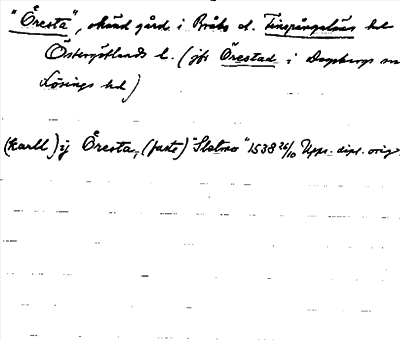 "Öresta", okänd gård i Bråbo el. Finspångaläns hd
Östergötlands l. (jfr Örestad i Dagsbergs sn
Lösings hd)
(karll) ij Öresta, (faste) "Slatmo" 1538 26/10 Upps. dipl. orig.